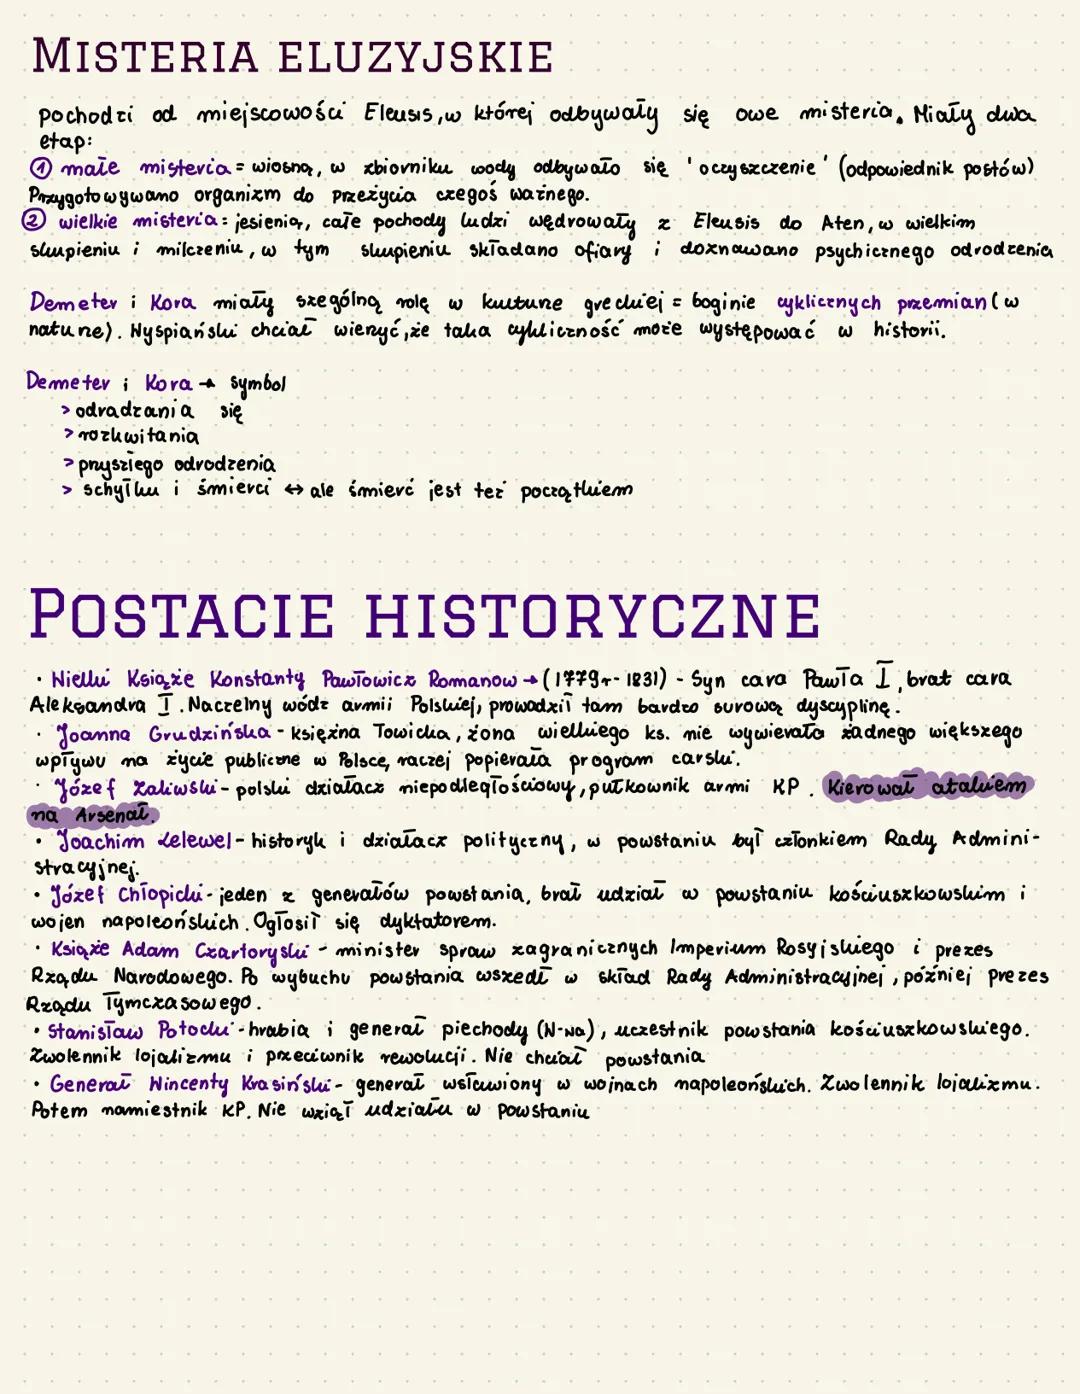 MISTERIA ELUZYJSKIE
pochodzi od miejscowości Eleusis, w której odbywały się owe misteria. Miały dwa
etap:
① małe misteria = wiosną, w zbiorniku wody odbywało się 'oczyszczenie' (odpowiednik postów)
Przygotowywano organizm do przeżycia czegoś ważnego.
② wielkie misteria: jesienią, całe pochody ludzi wędrowały z Eleusis do Aten, w wielkim
skupieniu i milczeniu, w tym skupieniu składano ofiary i doznawano psychicznego odrodzenia
Demeter i Kora miały szególną rolę w kulturze greckiej = boginie cyklicznych przemian (w
naturze). Wyspiański chciał wierzyć, że taka cykliczność może występować w historii.
Demeter i Kora → symbol
> odradzania się
> rozkwitania
> przyszłego odrodzenia
> schyłku i śmierci ↔ ale śmierć jest też początkiem
POSTACIE HISTORYCZNE
• Wielki Książe Konstanty Pawłowicz Romanow → (1779r - 1831) - Syn cara Pawła I, brat cara
Aleksandra I. Naczelny wódz armii Polskiej, prowadził tam bardzo surową dyscyplinę.
• Joanna Grudzińska - księżna Łowicka, żona wielkiego ks. nie wywierała żadnego większego
wpływu na życie publiczne w Polsce, raczej popierała program carski.
• Józef Zaliwski - polski działacz niepodległościowy, pułkownik armi KP. Kierował atakiem
na Arsenał.
• Joachim Lelewel - historyk i działacz polityczny, w powstaniu był członkiem Rady Admini-
stracyjnej.
• Józef Chłopicki - jeden z generałów powstania, brał udział w powstaniu kościuszkowskim i
wojen napoleońskich. Ogłosił się dyktatorem.
• Książe Adam Czartoryski - minister spraw zagranicznych Imperium Rosyjskiego i prezes
Rządu Narodowego. Po wybuchu powstania wszedł w skład Rady Administracyjnej, później prezes
Rządu Tymczasowego.
• Stanisław Potocki - hrabia i generał piechody (N-Na), uczestnik powstania kościuszkowskiego.
Zwolennik lojalizmu i przeciwnik rewolucji. Nie chciał powstania
• Generał Wincenty Krasiński - generał wsławiony w wojnach napoleońskich. Zwolennik lojalizmu.
Potem namiestnik KP. Nie wziął udziału w powstaniu